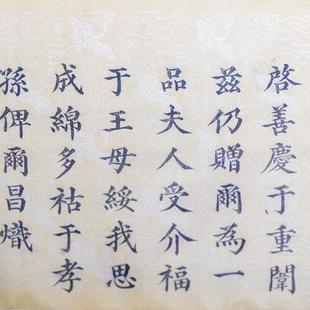 啓善慶于重闈
茲仍贈爾為一
品夫人受介福
于王母綏我思
成綿多祜于孝
孫俾爾昌熾